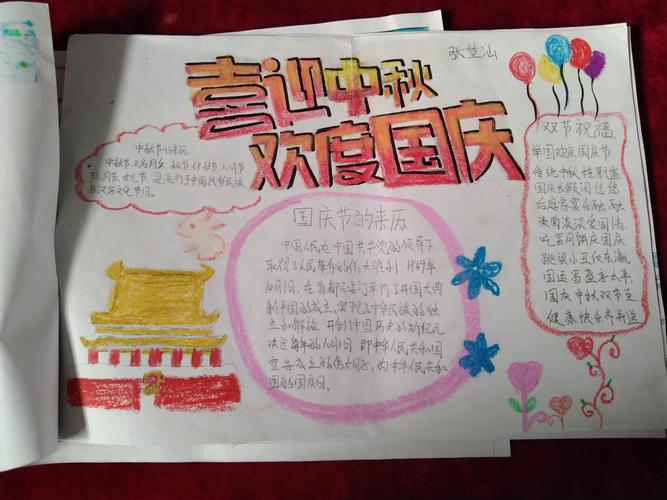 张芷汕
喜迎中秋
欢度国庆
中秋节的来历
中秋节又名月夕、秋节、仲秋节、八月节
玩月节、女儿节,是流行于中国众多民族
与汉字文化节间。
国庆节的来历
中国人民在中国共产党的领导下
取得了人民革命的伟大胜利,1949年
10月1日,在首都天安门举行了开国大典
新中国的成立,实现了中华民族的独
立和解放 开创了中国历史的新纪元
决定每年的10月1日 即中华人民共和国
宣告成立的伟大日子,为中华人民共和
国的国庆日。
双节祝福
举国欢庆国庆节
传统中秋
国庆长假
后庭家宴乐融融
浓南淡淡爱国情
吃罢月饼庆国庆
跳梁小丑仅东瀛
国运写
国庆中秋双节至
健康快乐齐